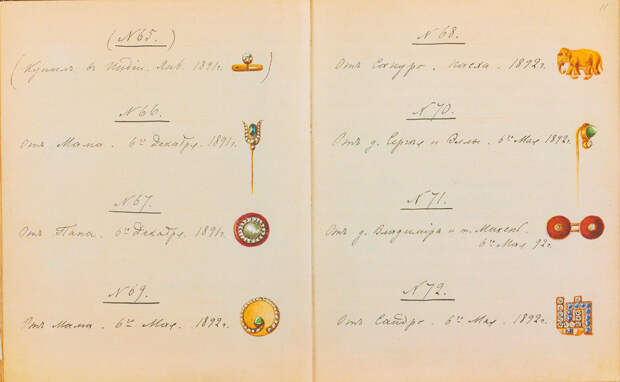 (N 65.)
(Купилъ въ Индіи. Янв. 1891г.)
N 66.
Отъ Мама. 6го Декабря. 1891г.
N 67.
Отъ Папа. 6го Декабря. 1891г.
N 69.
Отъ Мама. 6го Мая. 1892г.
N 68.
Отъ Сандро. Пасха. 1892г.
N 70.
Отъ д. Сергея и Эллы. 6го Мая 1892г.
N 71.
Отъ д. Владиміра и т. Михень.
6го Мая 92г.
N 72.
Отъ Сандро. 6го Мая. 1892г.